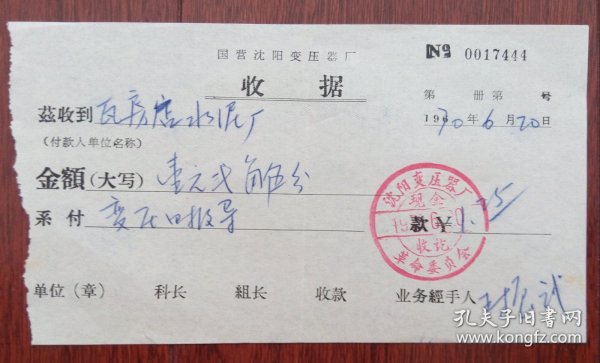 国营沈阳变压器厂
№ 0017444
收据
第 册第 号
1970年6月20日
茲收到 瓦房店水泥厂
(付款人单位名称)
金額(大写) 壹元弍角五分
系付 变压口报导
款¥1.25
沈阳变压器厂
现金
收讫
革命委员会
单位(章) 科长 組长 收款 业务經手人
孔夫子旧书网
www.kongfz.com